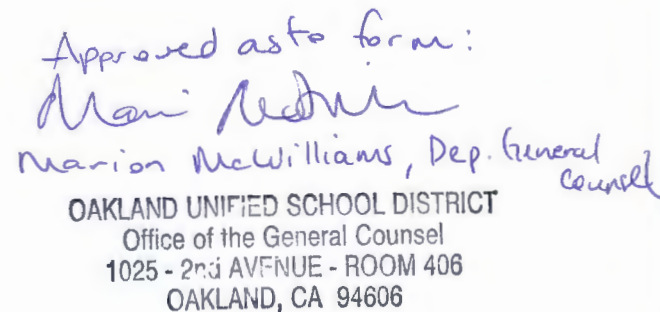 Approved as to form:
Marion McWilliams, Dep. General
Counsel
OAKLAND UNIFIED SCHOOL DISTRICT
Office of the General Counsel
1025 - 2nd AVENUE - ROOM 406
OAKLAND, CA 94606